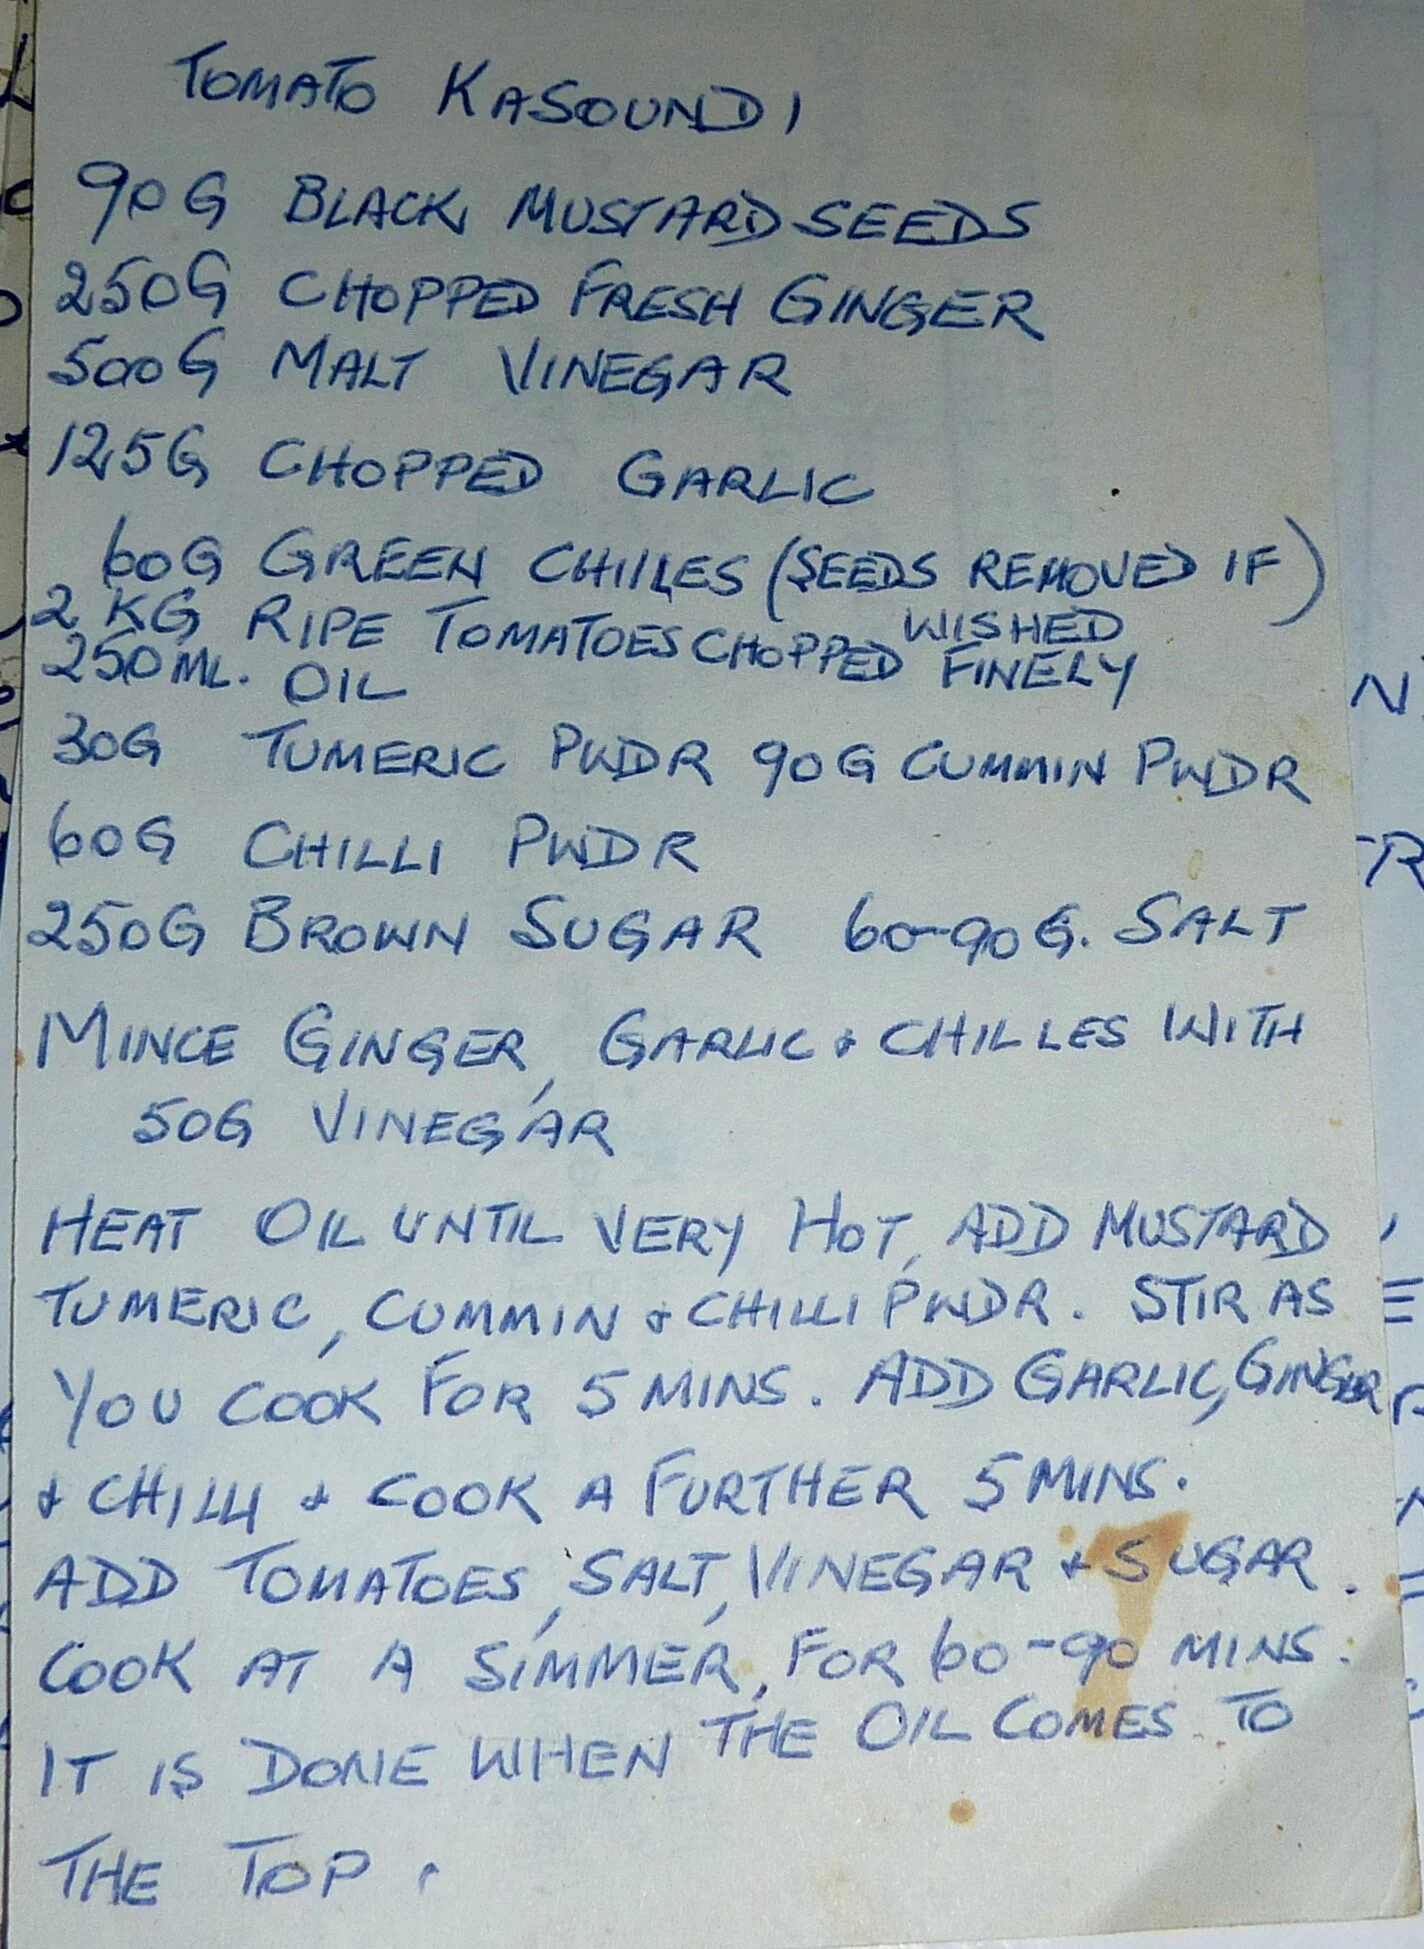 TOMATO KASOUNDI
90G BLACK MUSTARD SEEDS
250G CHOPPED FRESH GINGER
500G MALT VINEGAR
125G CHOPPED GARLIC
60G GREEN CHILLES (SEEDS REMOVED IF WISHED)
2 KG RIPE TOMATOES CHOPPED FINELY
250ML. OIL
30G TUMERIC PWDR 90G CUMMIN PWDR
60G CHILLI PWDR
250G BROWN SUGAR 60-90G. SALT
MINCE GINGER, GARLIC + CHILLES WITH
50G VINEGAR
HEAT OIL UNTIL VERY HOT, ADD MUSTARD
TUMERIC, CUMMIN + CHILLI PWDR. STIR AS
YOU COOK FOR 5 MINS. ADD GARLIC, GINGER
+ CHILLI + COOK A FURTHER 5 MINS.
ADD TOMATOES, SALT, VINEGAR + SUGAR.
COOK AT A SIMMER, FOR 60-90 MINS.
IT IS DONE WHEN THE OIL COMES TO
THE TOP.